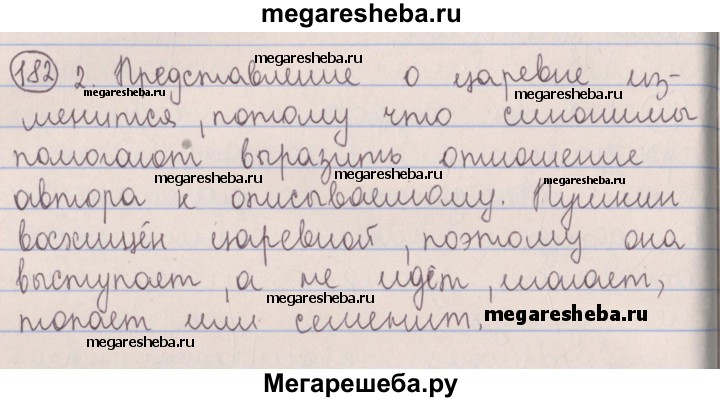 megaresheba.ru
megaresheba.ru
182 2. Представление о царевне из-
megaresheba.ru
megaresheba.ru
менится, потому что синонимы
помогают выразить отношение
megaresheba.ru
megaresheba.ru
автора к описываемому. Пушкин
megaresheba.ru
восхищён царевной, поэтому она
выступает, а не идёт, шагает,
megaresheba.ru
топает или семенит.
megaresheba.ru
megaresheba.ru
Мегарешеба.ру